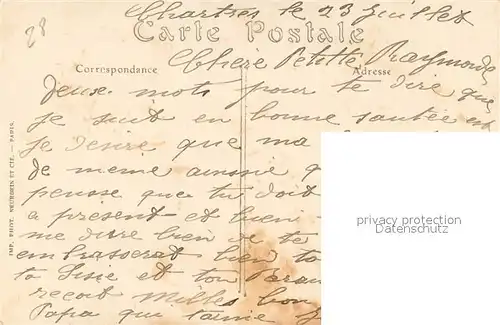 28
Chartres le 23 Juillet
Carte Postale
Chère Petitte Raymonde
Correspondance
Adresse
Deux mots pour te dire que
je suit en bonne santée et
je desire que ma
de meme ainssie q
pensse que tu doit
a present et bien
me dire bien je te
embrasserat bien to
ta Sisie et ton
reçoit milles bon
Papa qui t'aime
IMP. PHOT. NEURDEIN ET CIE. — PARIS.
privacy protection
Datenschutz